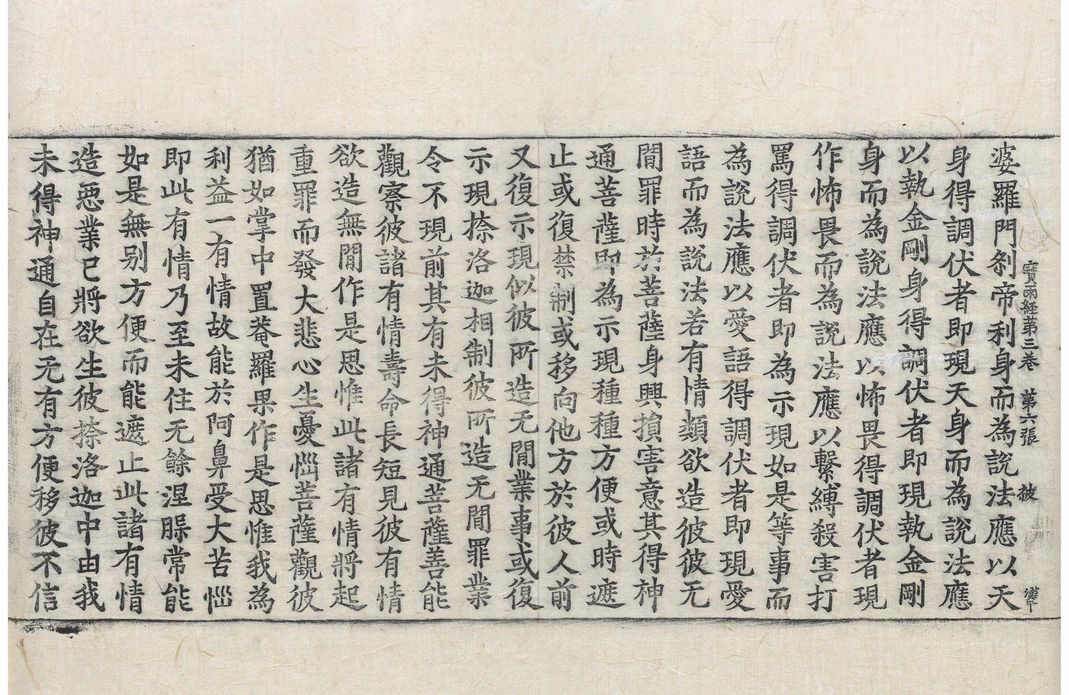 寶雨經第三卷 第六張 披
婆羅門剎帝利身而為說法應以天
身得調伏者即現天身而為說法應
以執金剛身得調伏者即現執金剛
身而為說法應以怖畏得調伏者現
作怖畏而為說法應以繫縛殺害打
罵得調伏者即為示現如是等事而
為說法應以愛語得調伏者即現愛
語而為說法若有情類欲造彼彼无
間罪時於菩薩身興損害意其得神
通菩薩即為示現種種方便或時遮
止或復禁制或移向他方於彼人前
又復示現似彼所造无間業事或復
示現捺洛迦相制彼所造无間罪業
令不現前其有未得神通菩薩善能
觀察彼諸有情壽命長短見彼有情
欲造無間作是思惟此諸有情將起
重罪而發大悲心生憂惱菩薩觀彼
猶如掌中置菴羅果作是思惟我為
利益一有情故能於阿鼻受大苦惱
即此有情乃至未住无餘涅槃常能
如是無别方便而能遮止此諸有情
造惡業已將欲生彼捺洛迦中由我
未得神通自在无有方便移彼不信